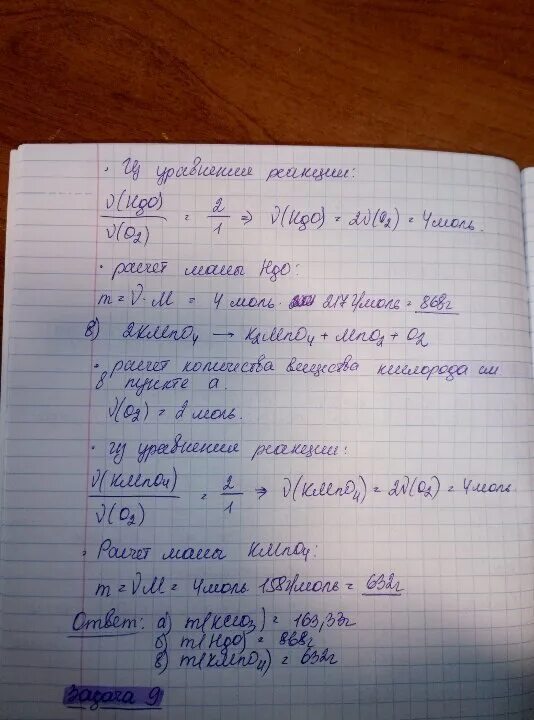 · Из уравнения реакции:
ν(HgO)/ν(O₂) = 2/1 ⇒ ν(HgO) = 2ν(O₂) = 4 моль.
· расчёт массы HgO:
m = ν · M = 4 моль · 217 г/моль = 868г
в) 2KMnO₄ → K₂MnO₄ + MnO₂ + O₂
· расчёт количества вещества кислорода см
в пункте а.
ν(O₂) = 2 моль.
· Из уравнения реакции:
ν(KMnO₄)/ν(O₂) = 2/1 ⇒ ν(KMnO₄) = 2ν(O₂) = 4 моль.
· Расчёт массы KMnO₄:
m = νM = 4моль · 158г/моль = 632г
Ответ: а) m(KClO₃) = 163,33г
б) m(HgO) = 868г
в) m(KMnO₄) = 632г
Задача 9